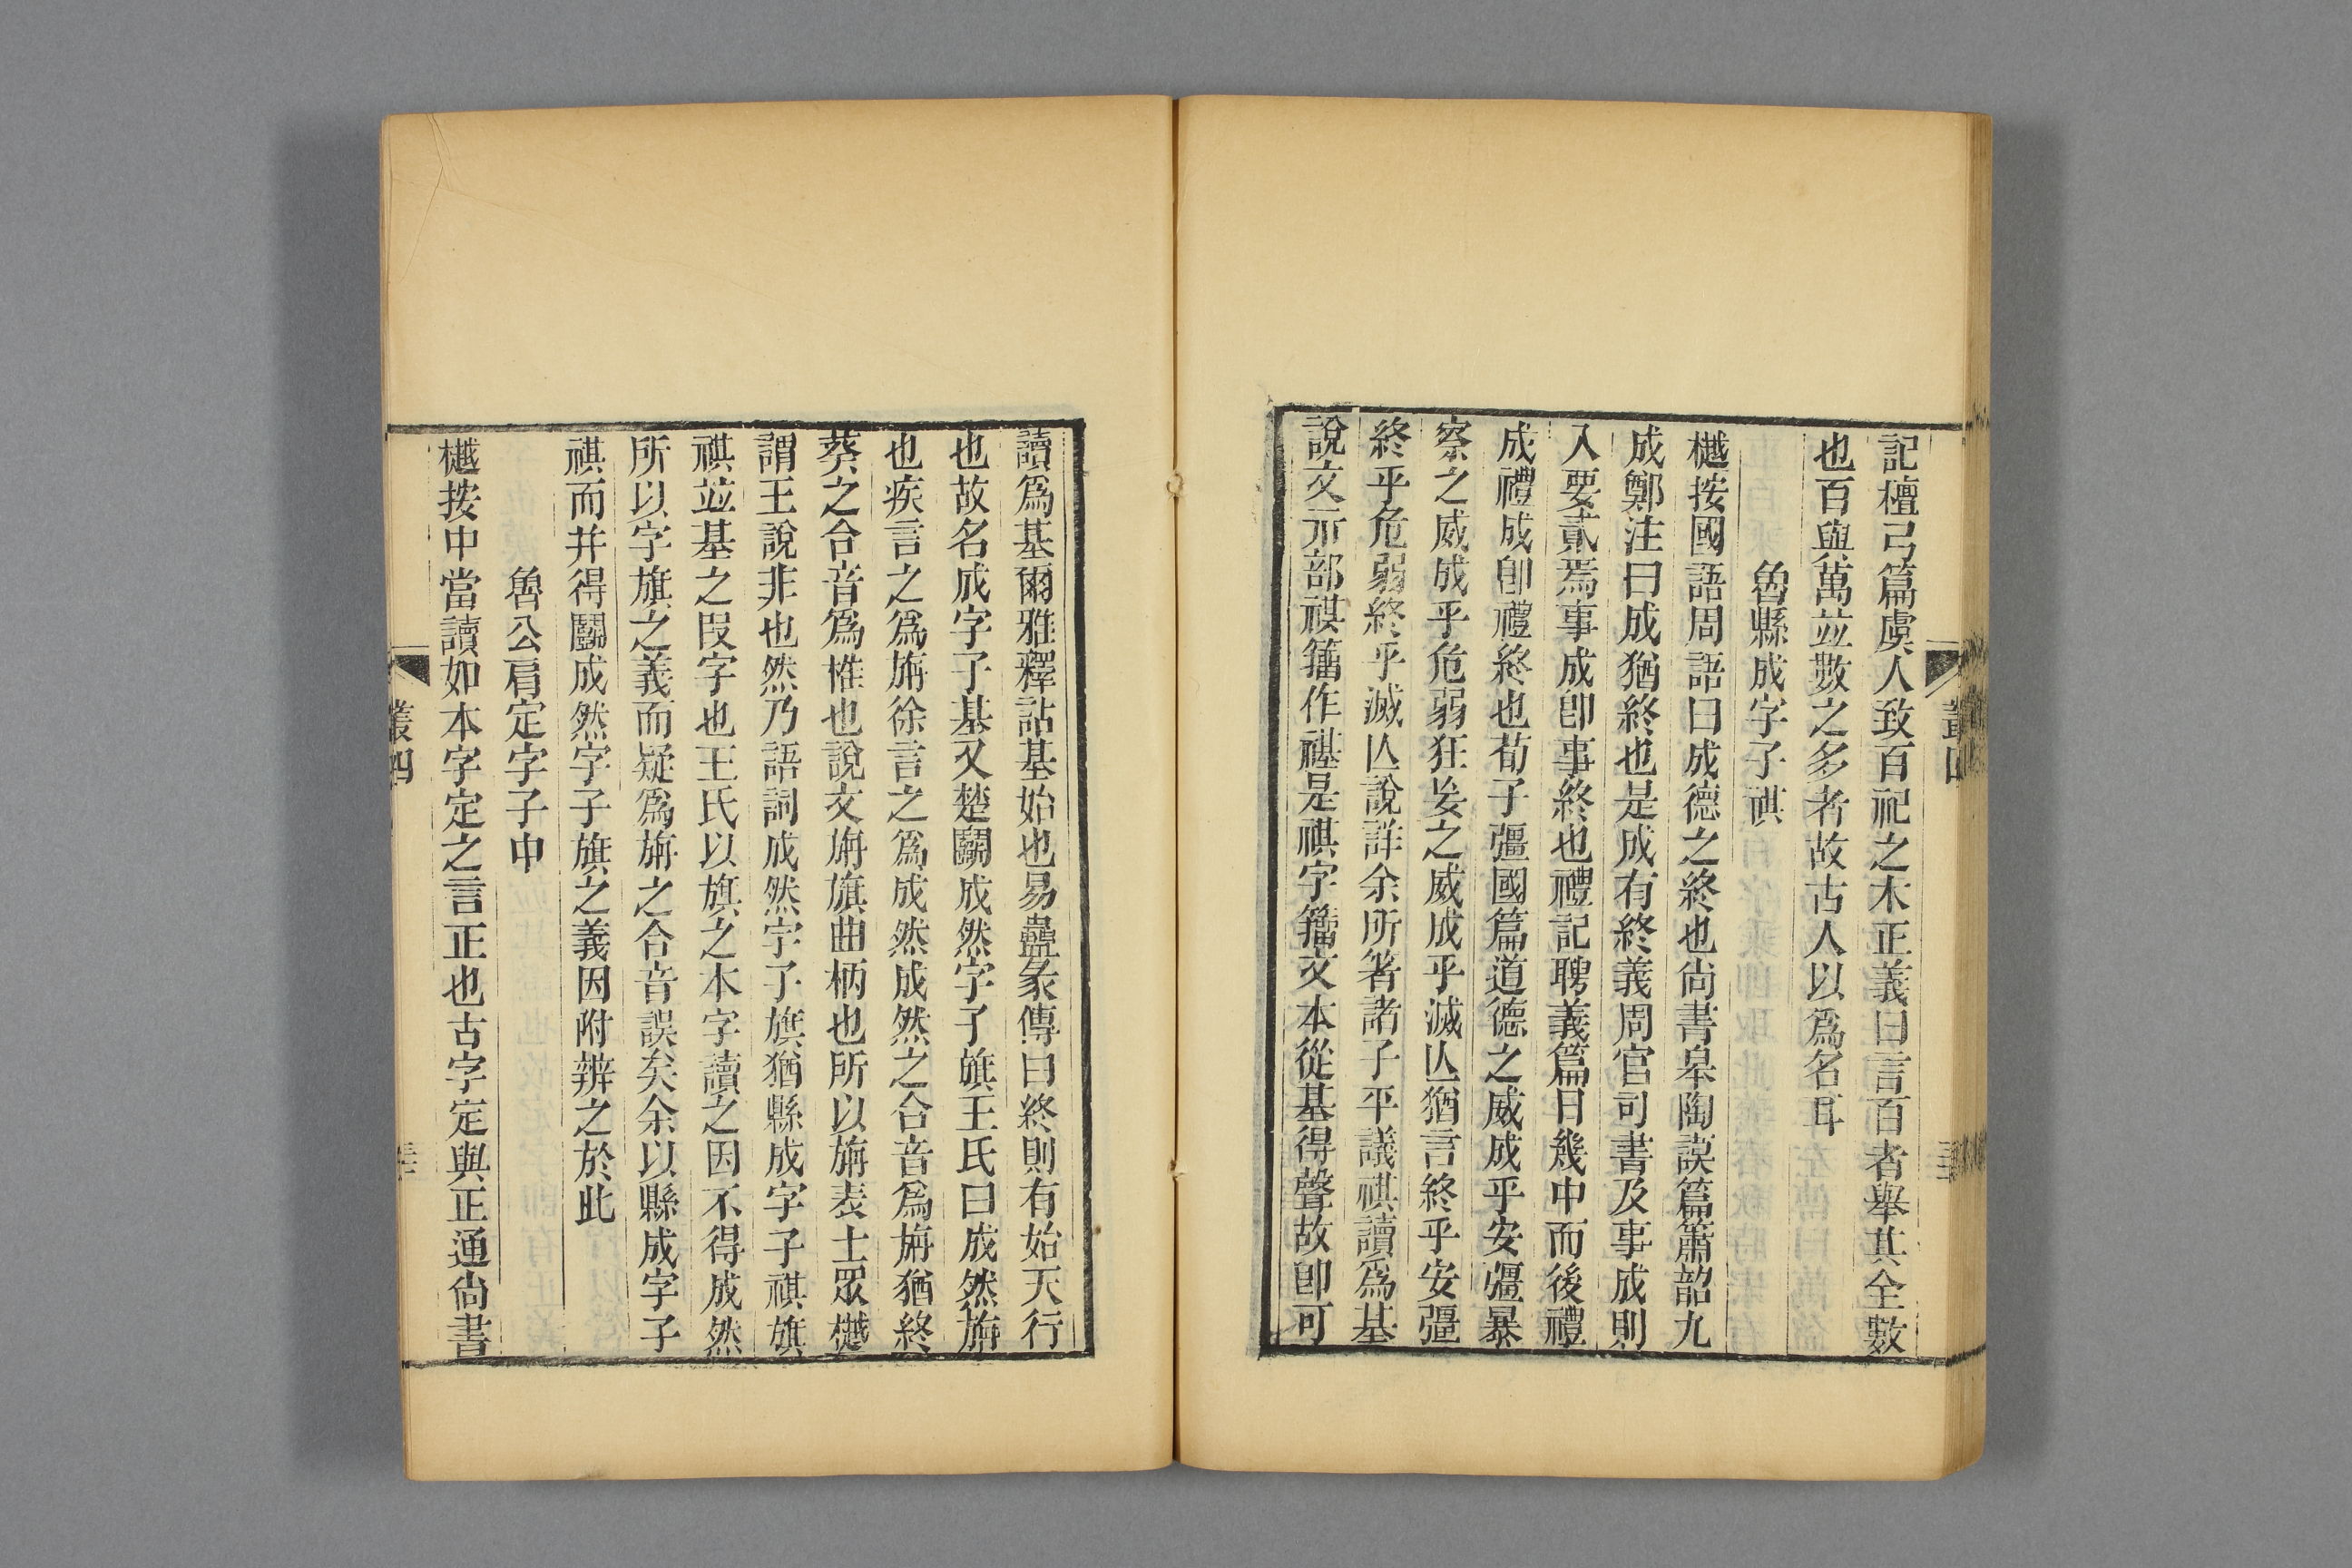 記檀弓篇虞人致百祀之木正義曰言百者舉其全數
也百與萬竝數之多者故古人以爲名耳
魯縣成字子祺
樾按國語周語曰成德之終也尙書皋陶謨篇簫韶九
成鄭注曰成猶終也是成有終義周官司書及事成則
入要貳焉事成卽事終也禮記聘義篇日幾中而後禮
成禮成卽禮終也荀子彊國篇道德之威成乎安彊暴
察之威成乎危弱狂妄之威成乎滅亾猶言終乎安彊
終乎危弱終乎滅亾說詳余所箸諸子平議祺讀爲基
說文示部祺籒作禥是祺字籒文本從基得聲故卽可
讀爲基爾雅釋詁基始也易蠱彖傳曰終則有始天行
也故名成字子基又楚鬭成然字子旗王氏曰成然旃
也疾言之爲旃徐言之爲成然成然之合音爲旃猶終
葵之合音爲椎也說文旃旗曲柄也所以旃表士眾樾
謂王說非也然乃語詞成然字子旗猶縣成字子祺旗
祺竝基之叚字也王氏以旗之本字讀之因不得成然
所以字旗之義而疑爲旃之合音誤矣余以縣成字子
祺而并得鬭成然字子旗之義因附辨之於此
魯公肩定字子中
樾按中當讀如本字定之言正也古字定與正通尙書
叢四